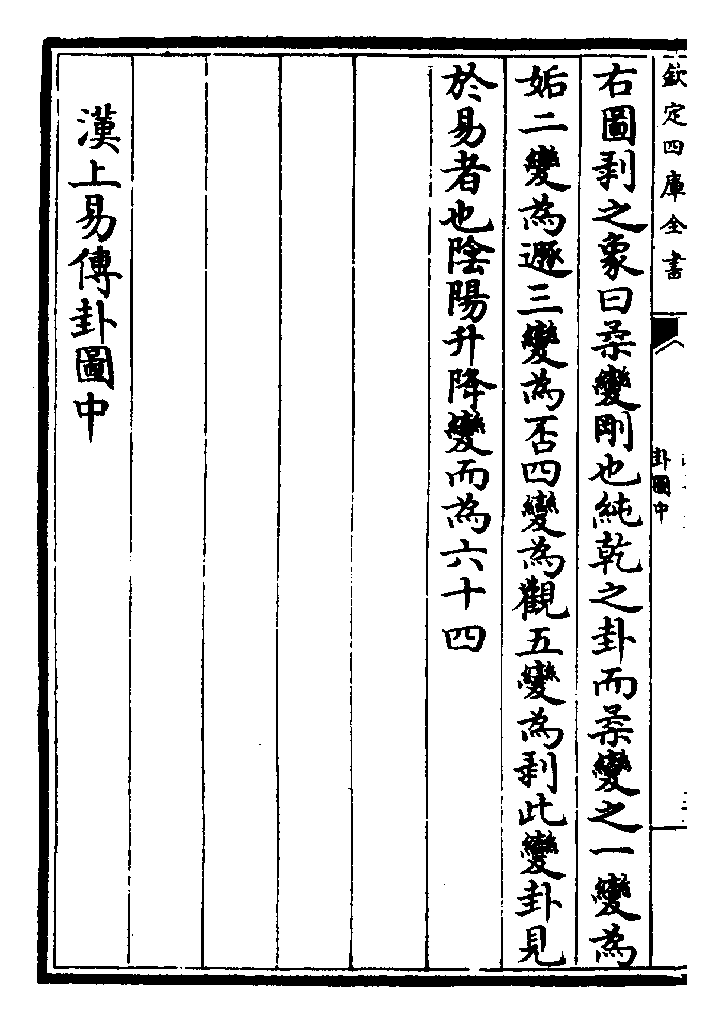 欽定四庫全書
卦圖中
右圖剥之象曰柔變剛也純乾之卦而柔變之一變為
姤二變為遯三變為否四變為觀五變為剥此變卦見
於易者也陰陽升降變而為六十四
漢上易傳卦圖中